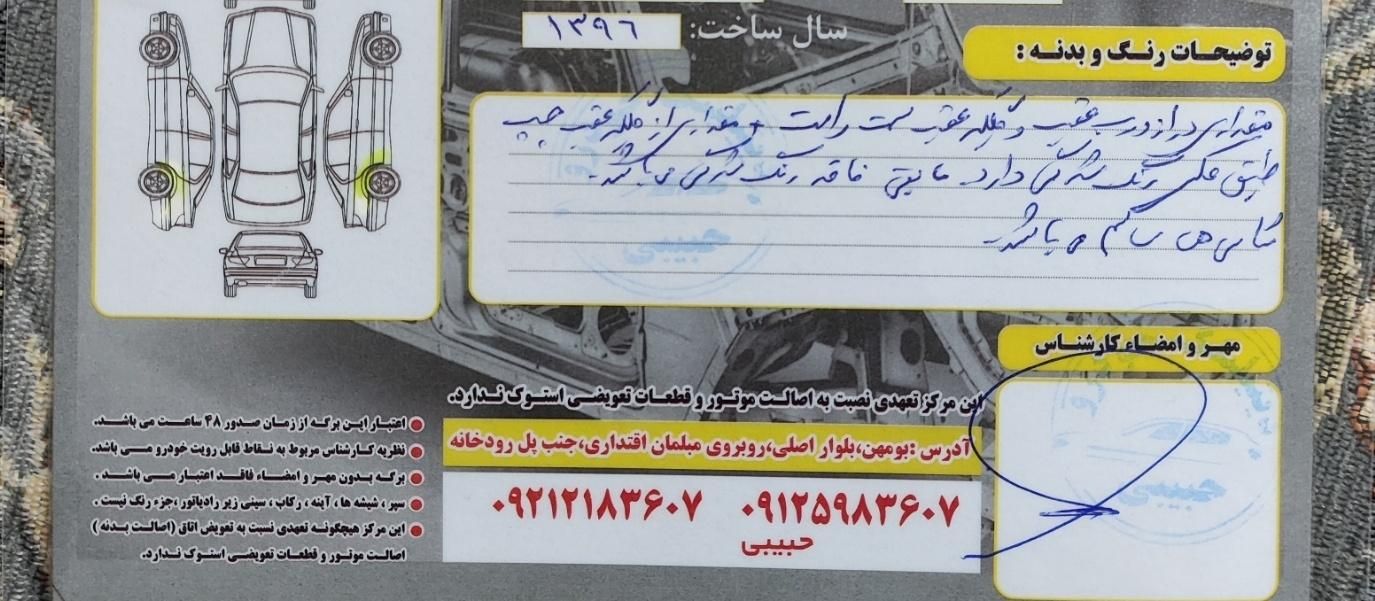 سال ساخت: ۱۳۹۶
توضیحات رنگ و بدنه :
مقداری از درب عقب و گلگیر عقب سمت راست و مقداری از گلگیر عقب چپ
طبق عکس رنگ شدگی دارد. مابقی فاقد رنگ شدگی می باشد.
شاسی ها سالم می باشد.
مهر و امضاء کارشناس
حبیبی
این مرکز تعهدی نسبت به اصالت موتور و قطعات تعویضی استوک ندارد.
آدرس :بومهن،بلوار اصلی،روبروی مبلمان اقتداری،جنب پل رودخانه
۰۹۱۲۵۹۸۳۶۰۷ ۰۹۲۱۲۱۸۳۶۰۷
حبیبی
اعتبار این برگه از زمان صدور ۴۸ ساعت می باشد.
نظریه کارشناس مربوط به نقاط قابل رویت خودرو می باشد.
برگه بدون مهر و امضاء فاقد اعتبار می باشد .
سپر ، شیشه ها ، آینه ، رکاب ، سینی زیر رادیاتور ،جزء رنگ نیست .
این مرکز هیچگونه تعهدی نسبت به تعویض اتاق (اصالت بدنه )
اصالت موتور و قطعات تعویضی استوک ندارد.